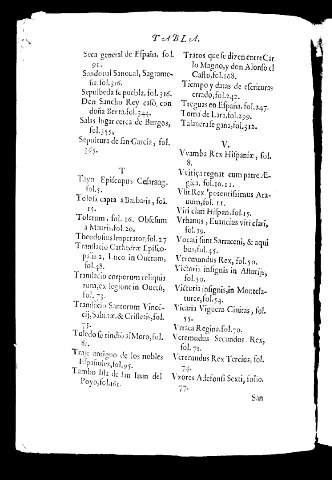 TABLA.
Seca general de España, fol.
91.
Sandoual Sanoual, Sagrame-
ña. fol.316.
Sepulbeda se puebla, fol.316.
Don Sancho Rey casó, con
doña Berta. fol.344.
Salas lugar cerca de Burgos,
fol.355.
Sepultura de san Garcia, fol.
365.
T
Tayn Episcopus Cesaraug.
fol.5.
Tolosa capta à Barbaris, fol.
15.
Toletum, fol. 16. Obsesum
à Mauris. fol.20.
Theodosius Imperator, fol.27
Translatio Cathedræ Episco-
palis Luco in Ouetum,
fol.58.
Translatio corporum reliquia
rum, ex legione in Ouetū,
fol. 73.
Translatio Sanctorum Vincē-
tij, Sabinæ, & Cristetis, fol.
73.
Toledo se rindió al Moro, fol.
82.
Traje antiguo de los nobles
Españoles, fol.95.
Tumbo de san Iuan del
Poyo, fol.
Tratos que se dizen entre Car-
lo Magno, y don Alonso el
Casto, fol.168.
Tiempo y datas de escrituras
errado, fol.242.
Treguas en España. fol.247.
Toma de Lara, fol.299.
Talauera se gana, fol.312.
V.
Vvamba Rex Hispaniæ, fol.
8.
Vvitiça regnat cum patre E-
gica. fol.10.11.
Vlit Rex potentissimus Ara-
uum, fol.11.
Viri clari Hispan. fol.15.
Vrbanus, Euancius viri clari,
fol.19.
Vocati sunt Sarraceni, & aqui
bus, fol.35.
Veremundus Rex, fol.50.
Victoria insignis in Asturijs,
fol.50.
Victoria insignis, in Monteta-
turce, fol.54.
Vicaria Viguera Ciuitas, fol.
55.
Vrraca Regina. fol.70.
Veremudus Secundus Rex,
fol. 71.
Veremundus Rex Tercius, fol.
74.
Vxores Aldefonsi Sexti, folio.
77.
San